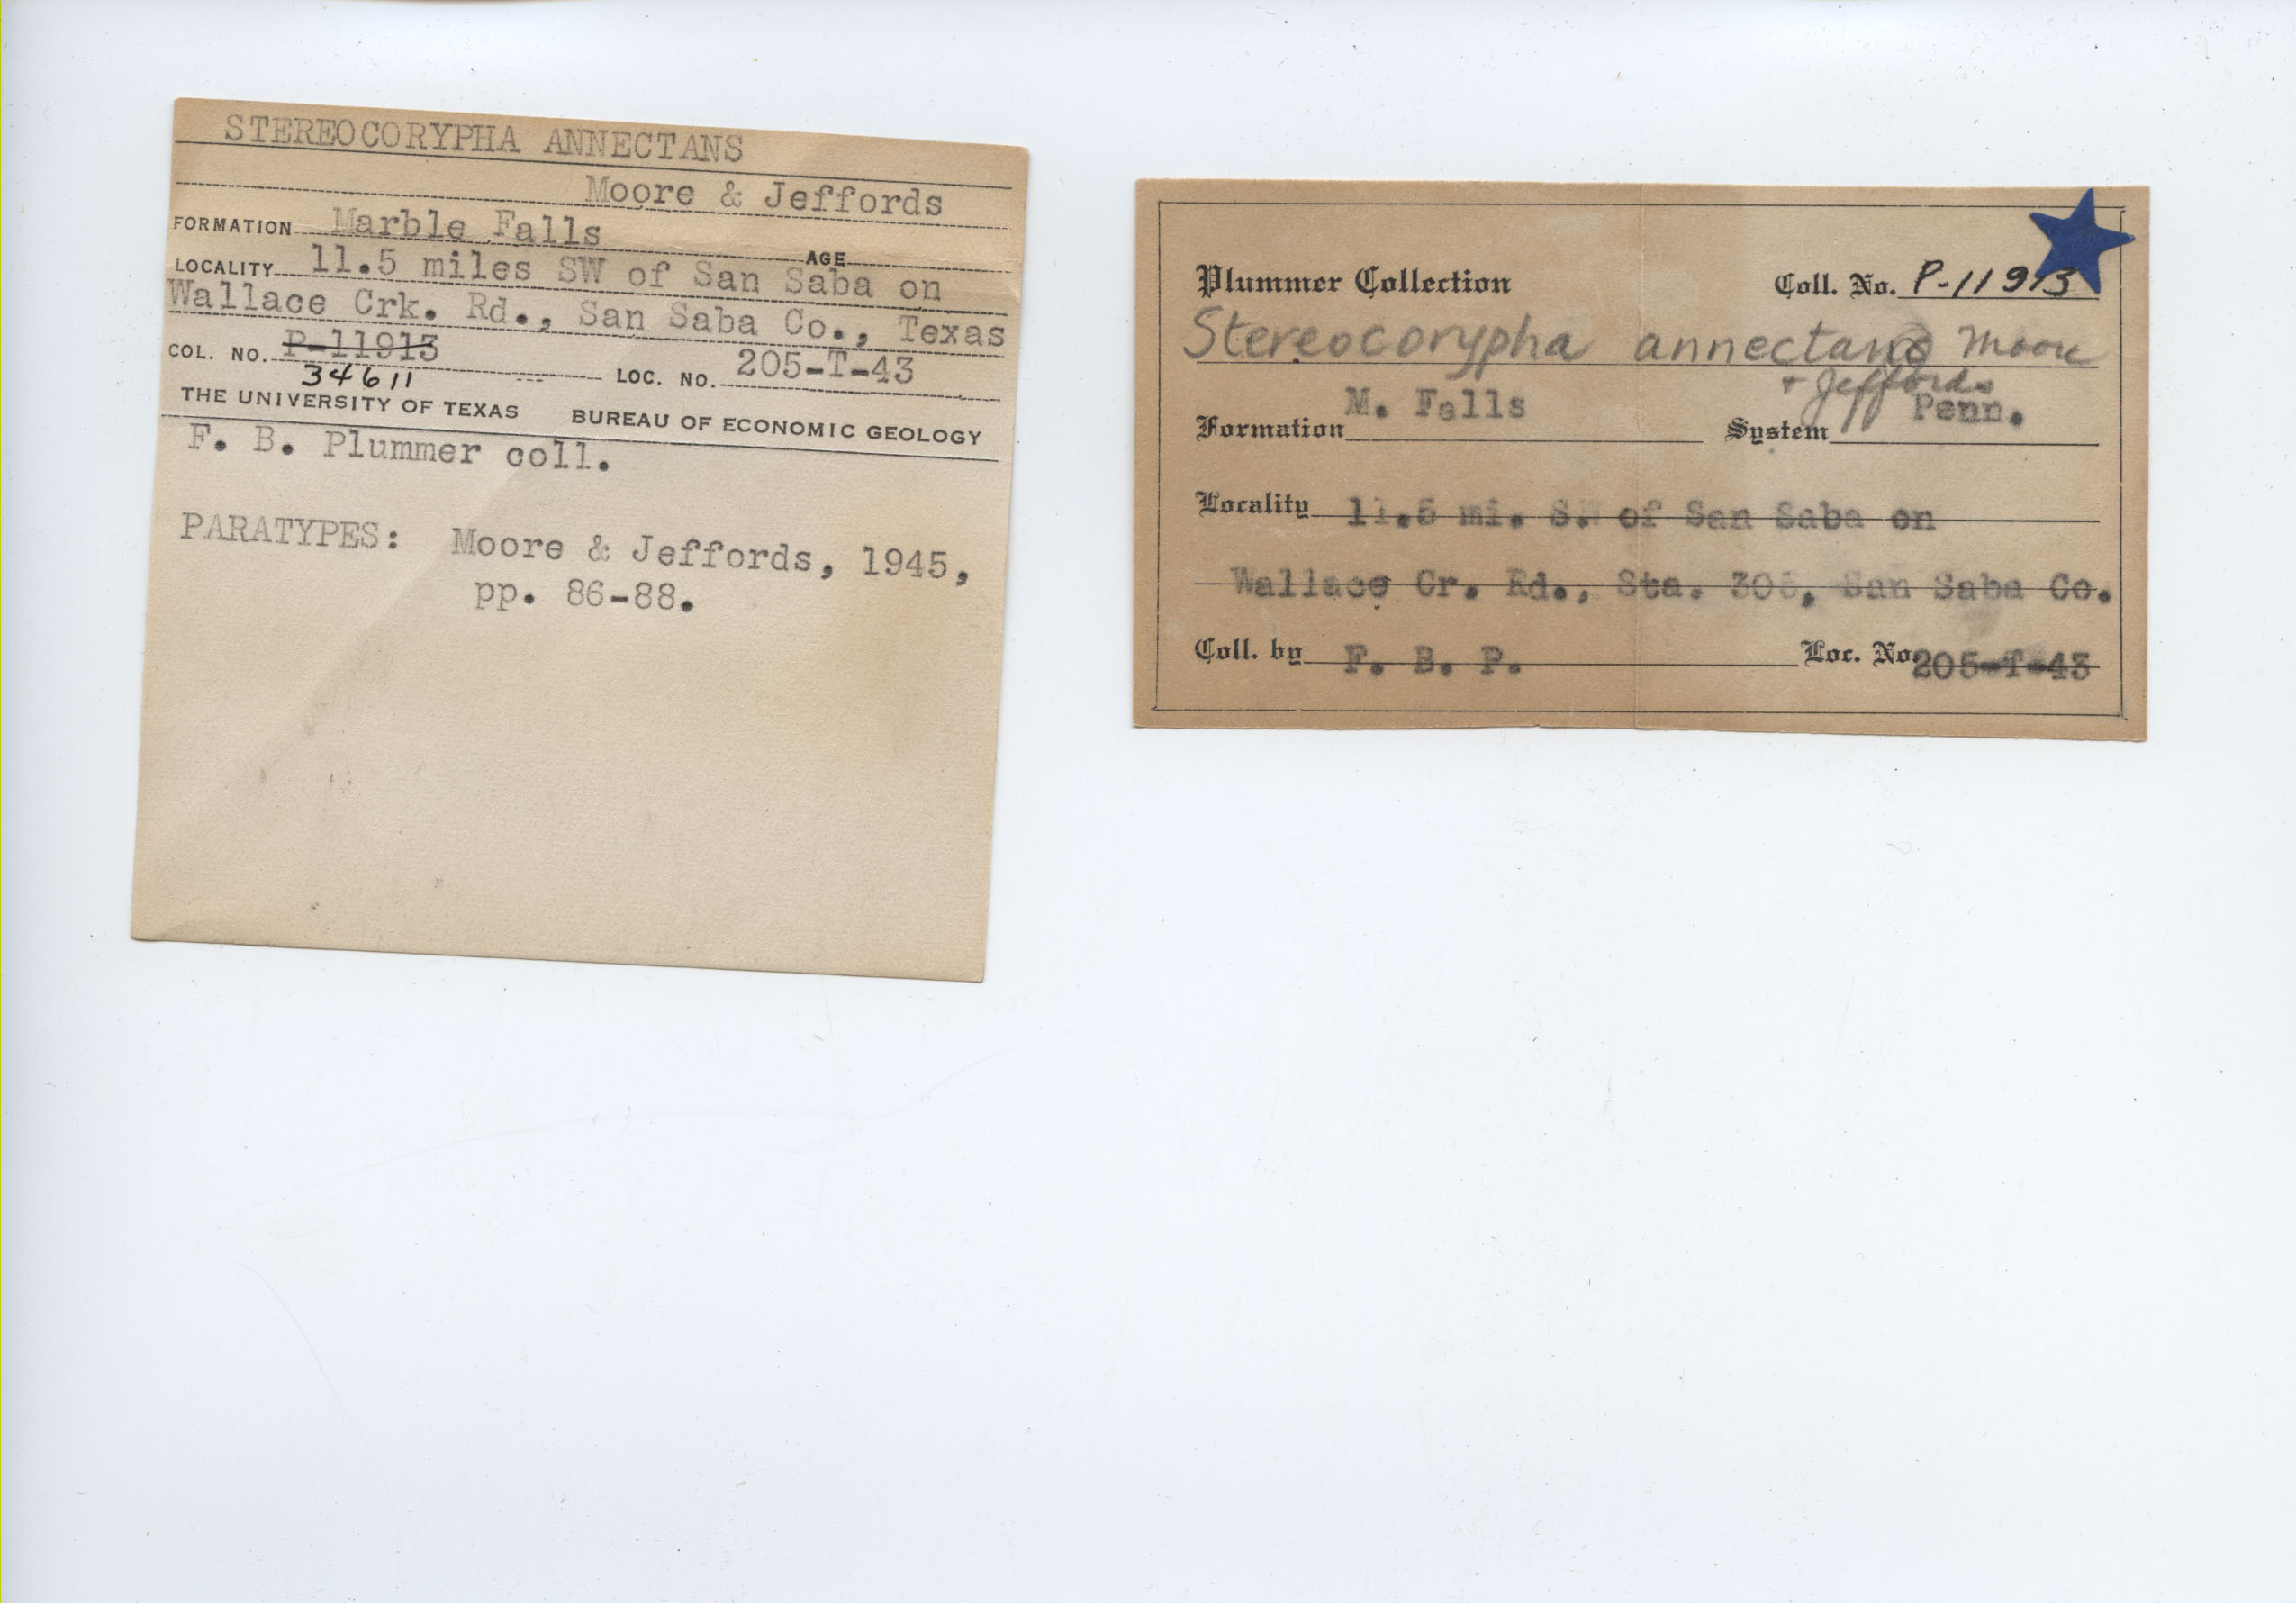 STEREOCORYPHA ANNECTANS
Moore & Jeffords
FORMATION Marble Falls AGE
LOCALITY 11.5 miles SW of San Saba on
Wallace Crk. Rd., San Saba Co., Texas
COL. NO. P-11913 LOC. NO. 205-T-43
34611
THE UNIVERSITY OF TEXAS BUREAU OF ECONOMIC GEOLOGY
F. B. Plummer coll.
PARATYPES: Moore & Jeffords, 1945,
pp. 86-88.
Plummer Collection Coll. No. P-11913
Stereocorypha annectans Moore
+ Jeffords
Formation M. Falls System Penn.
Locality 11.5 mi. SW of San Saba on
Wallace Cr. Rd., Sta. San Saba Co.
Coll. by F. B. P. Loc. No. 205-T-43